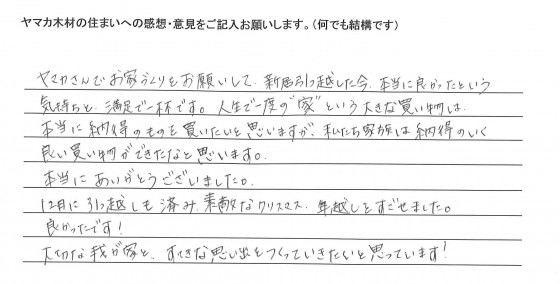 ヤマカ木材の住まいへの感想・意見をご記入お願いします。(何でも結構です)
ヤマカさんでお家づくりをお願いして、新居引っ越した今、本当に良かったという
気持ちと、満足で一杯です。人生で一度の"家"という大きな買い物は、
本当に納得のものを買いたいと思いますが、私たち家族は納得のいく
良い買い物ができたなと思います。
本当にありがとうございました。
12月に引っ越しも済み、素敵なクリスマス、年越しをすごせました。
良かったです!
大切な我が家と、すてきな思い出をつくっていきたいと思っています!